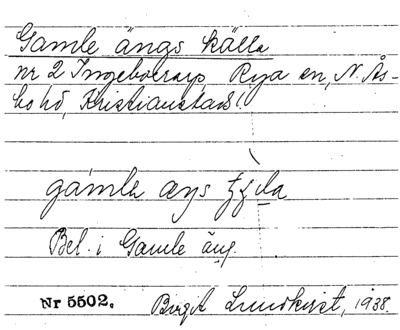 Gamle ängs källa
nr 2 Ingebotrarp, Rya sn, N. Ås-
bo hd, Kristianstads l.
gamla
Bel. i Gamle äng.
Nr 5502.
Birgit Lundkvist, 1938.